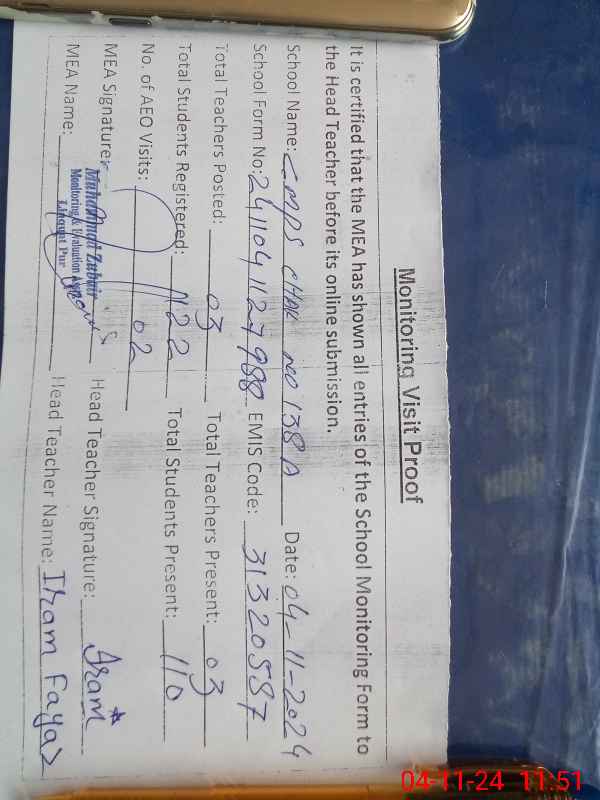 Monitoring Visit Proof
It is certified that the MEA has shown all entries of the School Monitoring Form to
the Head Teacher before its online submission.
School Name: GMPS CHAK NO 138 A Date: 04-11-2024
School Form No: 2411041127988 EMIS Code: 31320587
Total Teachers Posted: 03 Total Teachers Present: 03
Total Students Registered: 122 Total Students Present: 110
No. of AEO Visits: 02
MEA Signature: Head Teacher Signature: Iram
Muhammad Zubair
Monitoring & Evaluation
Liaquat Pur
MEA Name: Head Teacher Name: Iram Fayaz
04-11-24 11:51